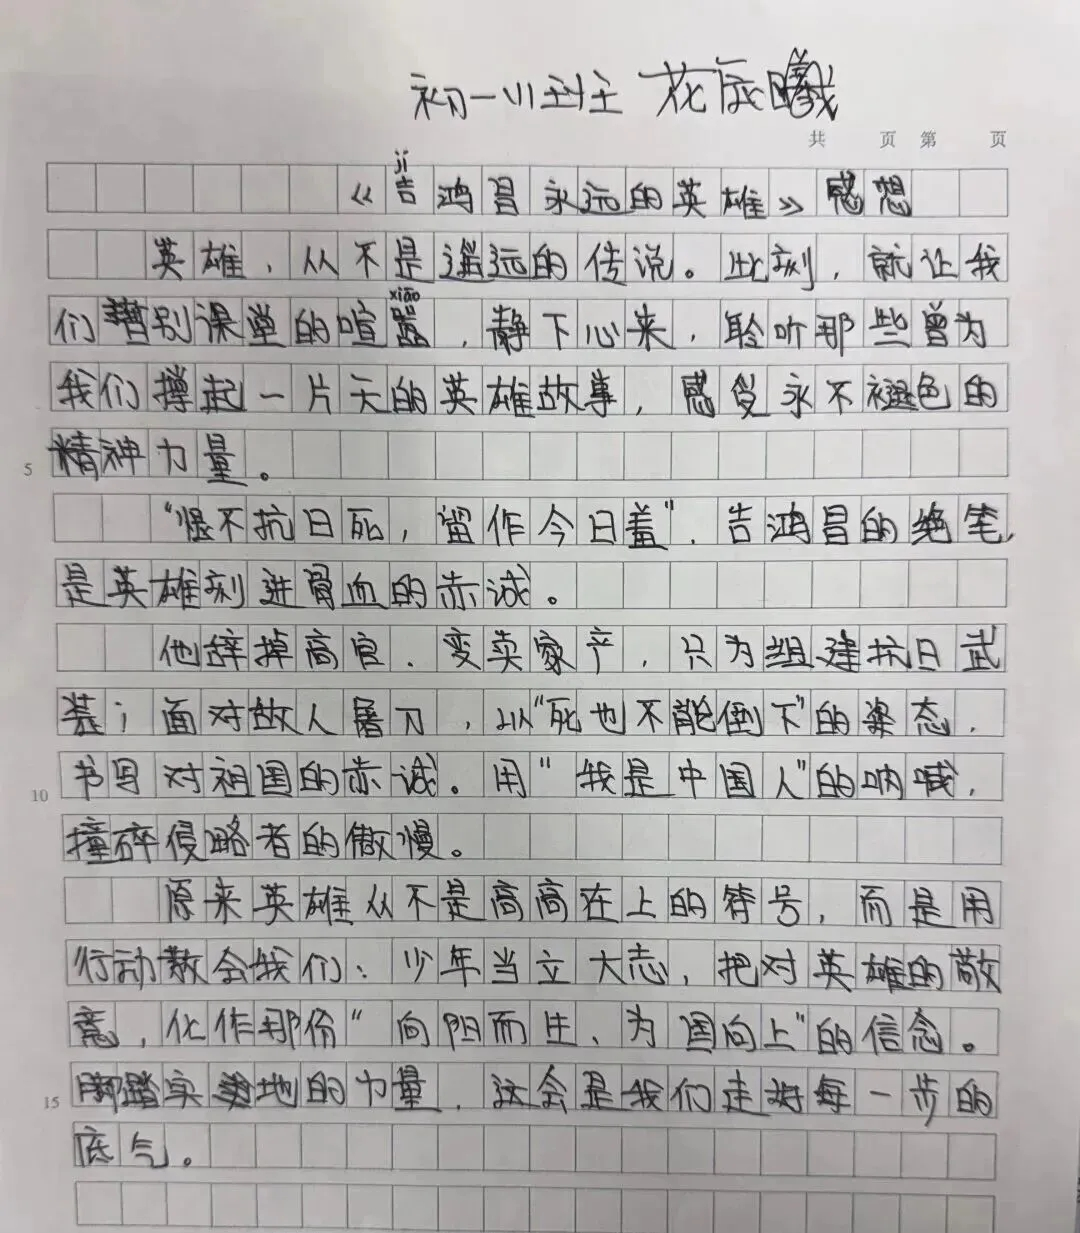 初一川班 花辰曦
共 页 第 页
jí
《吉鸿昌永远的英雄》感想
英雄，从不是遥远的传说。此刻，就让我
xiāo
们暂别课堂的喧嚣，静下心来，聆听那些曾为
我们撑起一片天的英雄故事，感受永不褪色的
5 精神力量。
“恨不抗日死，留作今日羞”，吉鸿昌的绝笔，
是英雄刻进骨血的赤诚。
他辞掉高官，变卖家产，只为组建抗日武
装；面对敌人屠刀，以“死也不能倒下”的姿态，
10 书写对祖国的赤诚。用“我是中国人”的呐喊，
撞碎侵略者的傲慢。
原来英雄从不是高高在上的符号，而是用
行动教会我们：少年当立大志，把对英雄的敬
意，化作那份“向阳而生、为国向上”的信念。
15 脚踏实地的力量，这会是我们走好每一步的
底气。